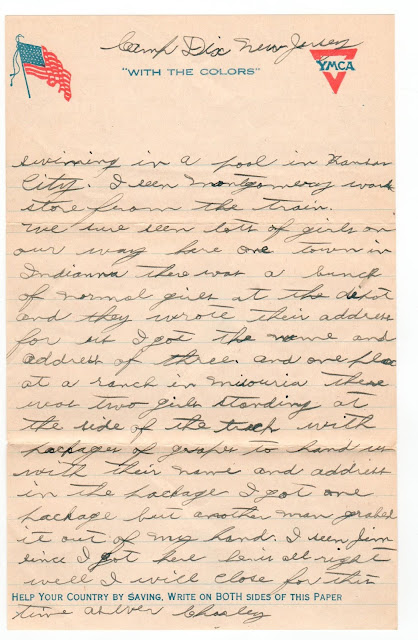 Camp Dix New Jersey
"WITH THE COLORS"
YMCA
swimming in a pool in Kansas
City. I seen Montgomery ward
store from the train.
We we seen lots of girls on
our way here one town in
Indianna there was a bunch
of normal girls at the depot
and they wrote their address
for us I got the name and
address of three. and one place
at a ranch in Misouria there
was two girls standing at
the side of the track with
packages of grapes to hand us
with their name and address
in the package I got one
package but another man grabed
it out of my hand. I seen Jim
since I got here he is all right
well I will close for this
HELP YOUR COUNTRY BY SAVING, WRITE ON BOTH SIDES OF THIS PAPER
time as ever Charley